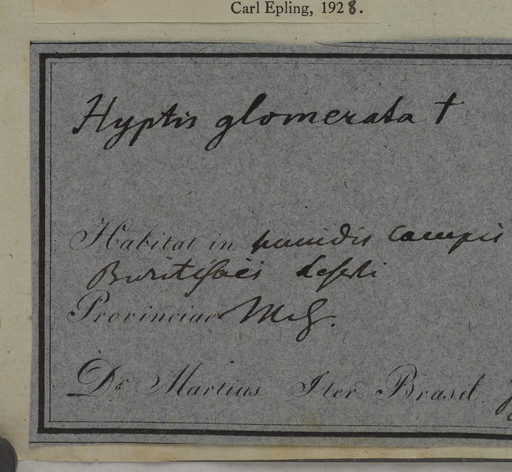 Carl Epling, 1928.
Hyptis glomerata †
Habitat in humidis campis
Provinciae M. G.
Dr. Martius Iter Brasil.